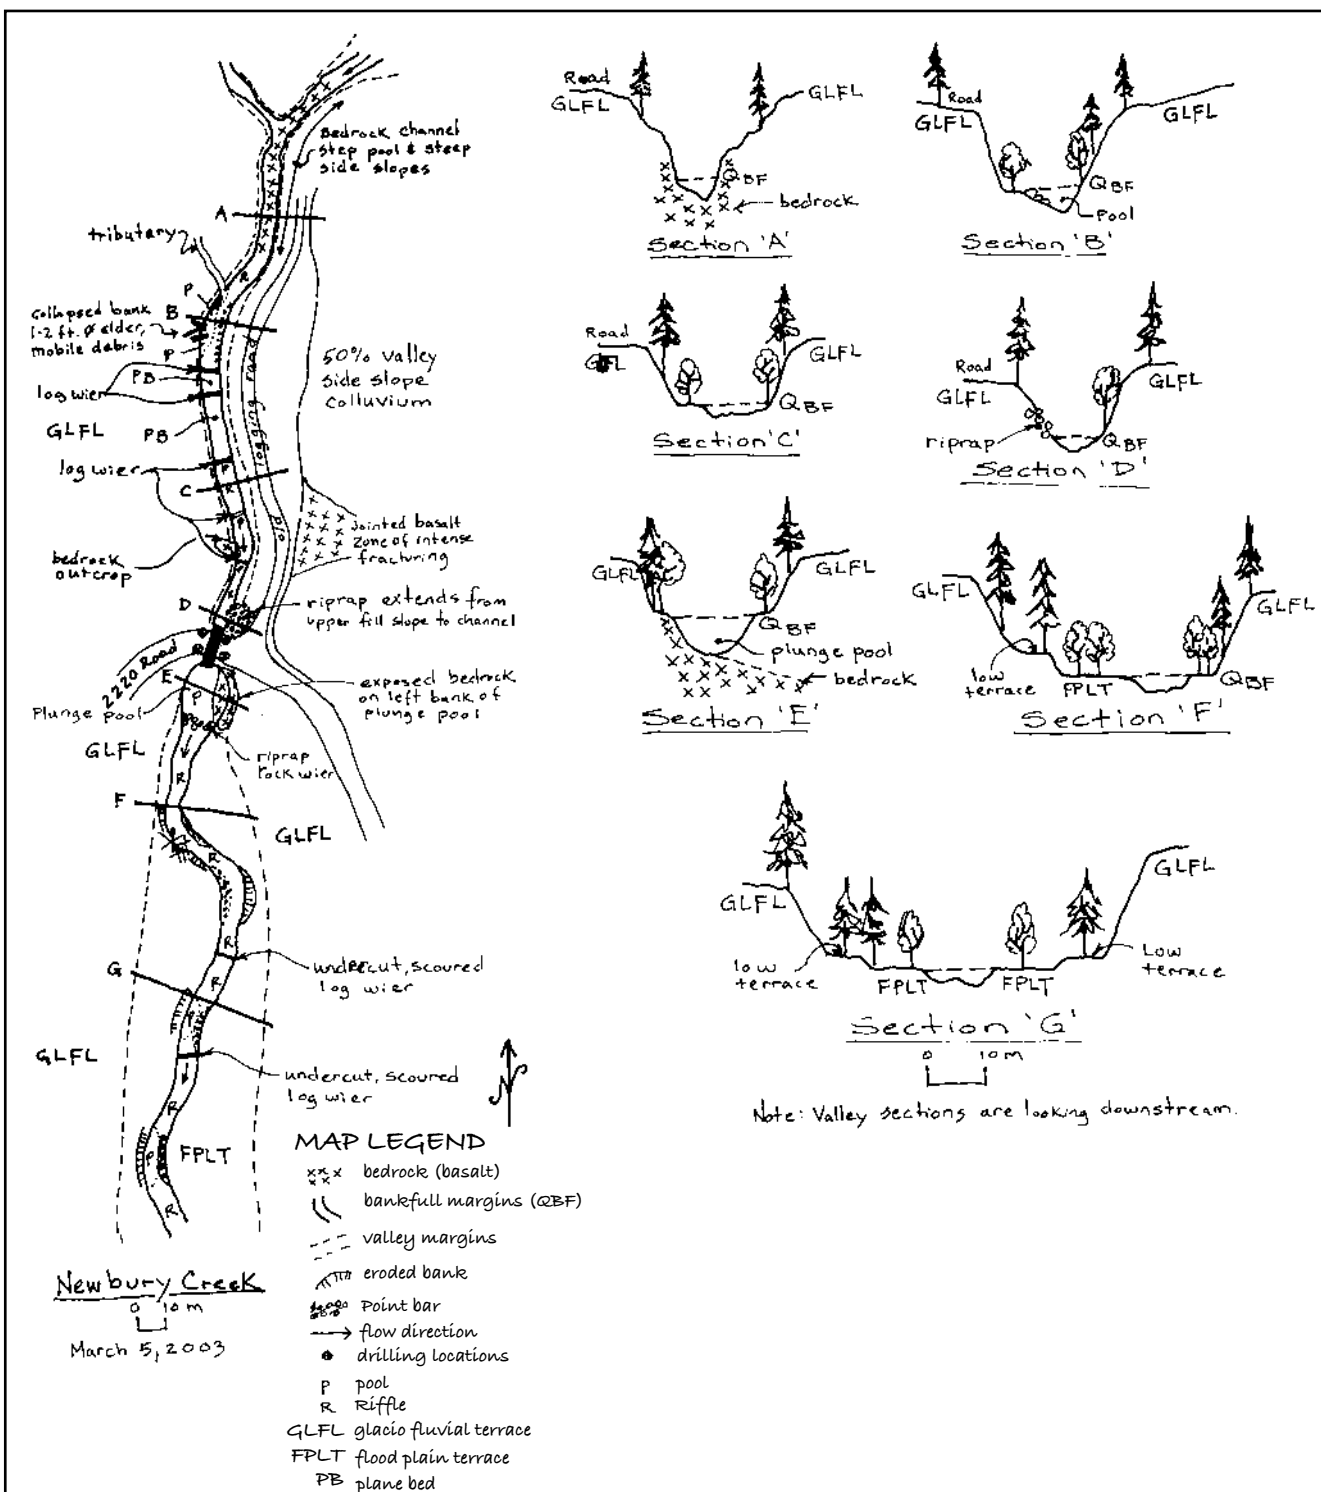 Bedrock channel
step pool & steep
side slopes
A
tributary
R
P
B
collapsed bank
1-2 ft. ø elder,
mobile debris
P
PB
log wier
GLFL
PB
50% valley
side slope
colluvium
old logging road
log wier
P
C
R
Jointed basalt
zone of intense
fracturing
bedrock
outcrop
D
riprap extends from
upper fill slope to channel
2220 Road
E
P
Plunge pool
exposed bedrock
on left bank of
plunge pool
GLFL
riprap
rock wier
R
F
GLFL
R
R
undercut, scoured
log wier
G
R
GLFL
undercut, scoured
log wier
R
P
FPLT
R
N
Newbury Creek
0 10 m
March 5, 2003
MAP LEGEND
bedrock (basalt)
bankfull margins (QBF)
valley margins
eroded bank
Point bar
flow direction
drilling locations
P pool
R Riffle
GLFL glacio fluvial terrace
FPLT flood plain terrace
PB plane bed
Road
GLFL
GLFL
QBF
bedrock
Section 'A'
Road
GLFL
GLFL
QBF
Pool
Section 'B'
Road
GLFL
GLFL
QBF
Section 'C'
Road
GLFL
GLFL
riprap
QBF
Section 'D'
GLFL
GLFL
QBF
plunge pool
bedrock
Section 'E'
GLFL
GLFL
low
terrace
FPLT
QBF
Section 'F'
GLFL
GLFL
low
terrace
FPLT
FPLT
Low
terrace
Section 'G'
0 10 m
Note: Valley sections are looking downstream.